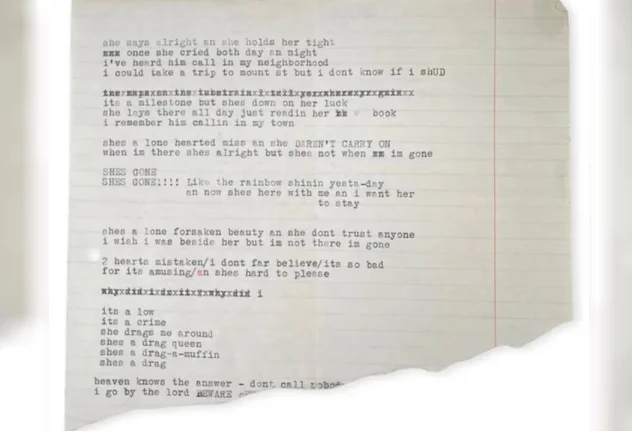 she says alright an she holds her tight
xxx once she cried both day an night
i've heard him call in my neighborhood
i could take a trip to mount st but i dont know if i shUD
its a milestone but shes down on her luck
she lays there all day just readin her book
i remember him callin in my town
shes a lone hearted miss an she DAREN'T CARRY ON
when im there shes alright but shes not when im gone
SHES GONE
SHES GONE!!!! Like the rainbow shinin yesta-day
an now shes here with me an i want her
to stay
shes a lone forsaken beauty an she dont trust anyone
i wish i was beside her but im not there im gone
2 hearts mistaken/i dont far believe/its so bad
for its amusing/an shes hard to please
i
its a low
its a crime
she drags me around
shes a drag queen
shes a drag-a-muffin
shes a drag
heaven knows the answer - dont call nobody
i go by the lord BEWARE